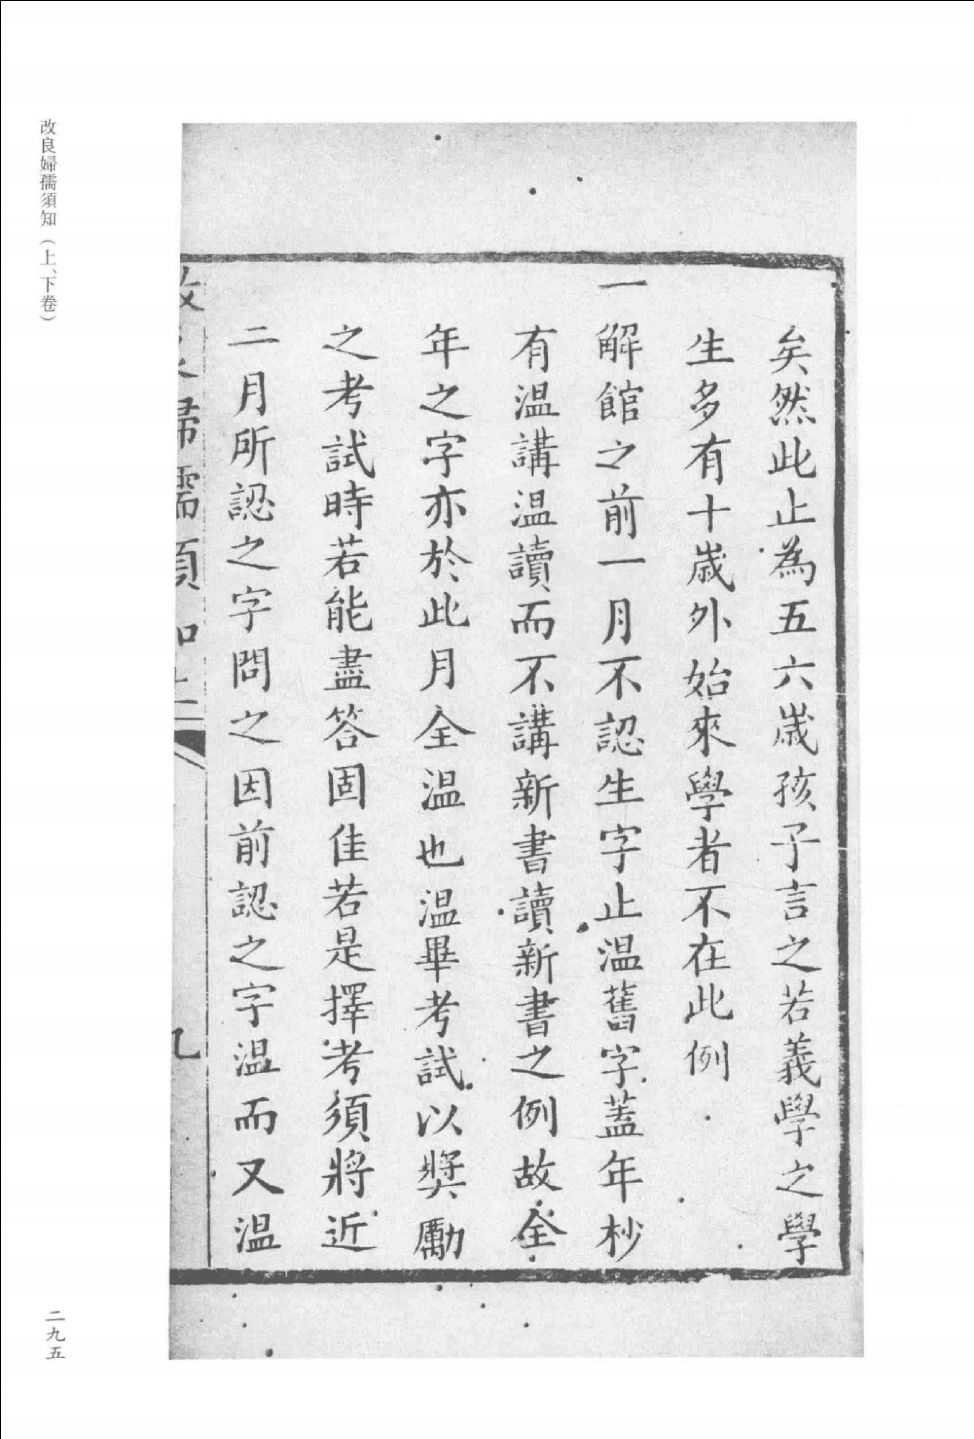 矣然此止為五六歲孩子言之若義學之學
生多有十歲外始來學者不在此例
一解館之前一月不認生字止溫舊字蓋年杪
有溫講溫讀而不講新書讀新書之例故全
年之字亦於此月全溫也溫畢考試以獎勵
之考試時若能盡答固佳若是擇考須將近
二月所認之字問之因前認之字溫而又溫
改良婦孺須知上 九
改良婦孺須知（上、下卷）
二九五